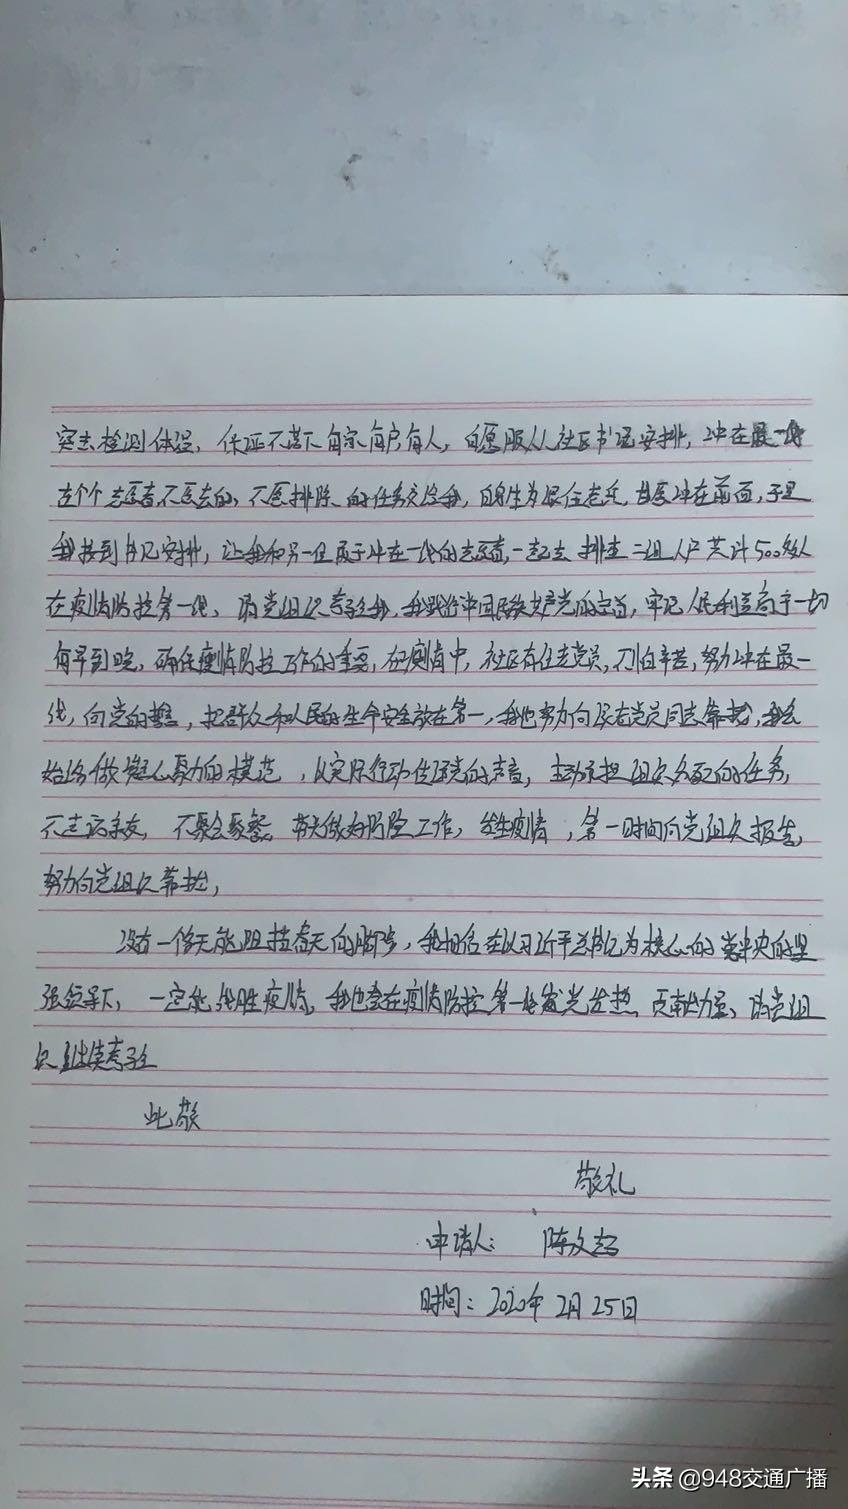 检测体温，保证不落下每家每户每人，自愿服从社区书记安排，冲在最一线
志愿者不愿去的，不愿排除的任务交给我，冲在前面，于是
我接到书记安排，让我和另一位勇于冲在一线的志愿者，一起去排查二组人户共计500多人
在疫情防控第一线，请党组织考验我，我践行中国共产党的宗旨，牢记人民利益高于一切
每早到晚，疫情防控工作的重要，在疫情中，社区每位老党员，不怕辛苦，努力冲在最一
线，向党的誓言，把群众和人民的生命安全放在第一，我也努力向党员同志靠拢，我会
始终做凝心聚力的模范，以实际行动传递党的声音，主动承担组织分配的任务，
不走访亲友，不聚会聚餐，带头做好防控工作，发生疫情，第一时间向党组织报告，
努力向党组织靠拢，
没有一个冬天能阻挡春天的脚步，我相信在以习近平总书记为核心的党中央的坚
强领导下，一定能战胜疫情，我也会在疫情防控第一线发光发热，贡献力量，请党组
织继续考验
此敬
敬礼
申请人：陈文超
时间：2020年2月25日
头条 @948交通广播